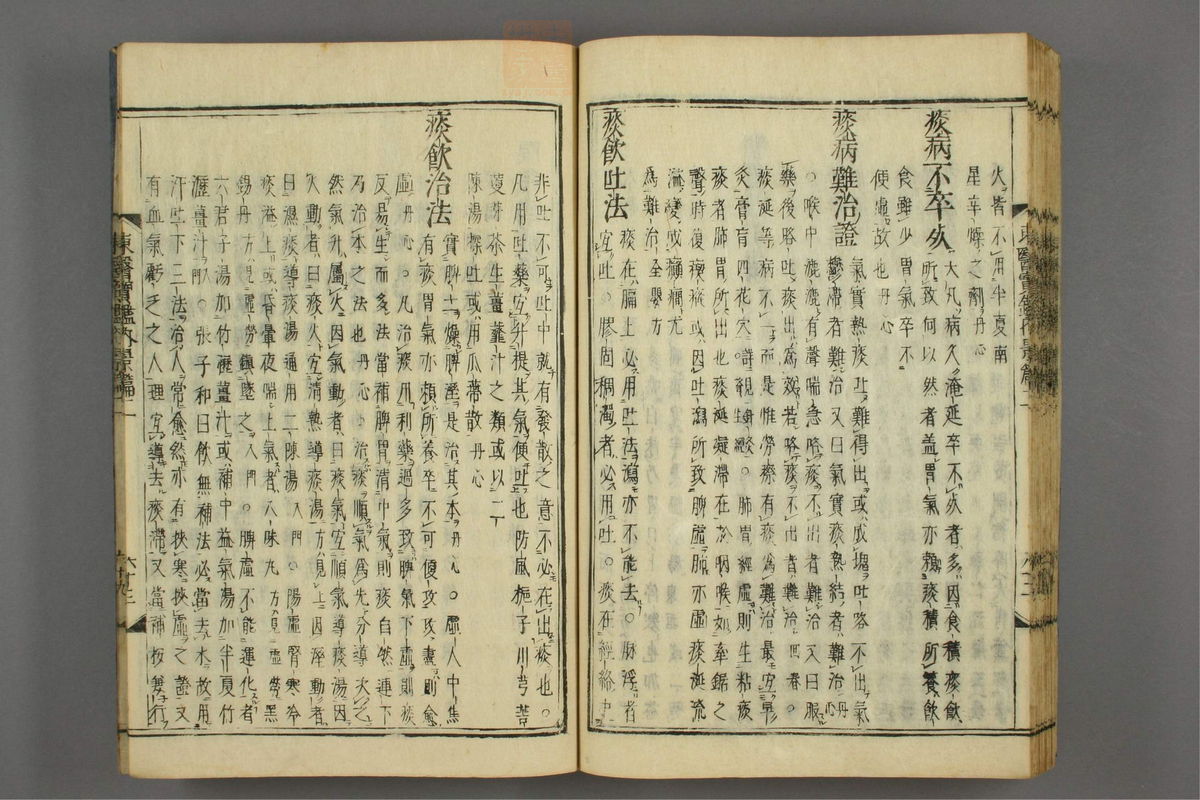 火皆不用半夏南
星辛燥之劑丹心
痰病不卒死
大凡病久淹延卒不死者多因食積痰飲
所致何以然者盖胃氣亦賴痰積所養飲
食雖少胃氣卒不
便虛故也丹心
痰病難治證
氣實熱痰吐難得出或成塊吐咯不出氣
鬱滯者難治又曰氣實痰熱結者難治丹心
○喉中漉漉有聲喘急咯痰不出者難治又曰服
藥後咯吐痰出爲效若咯痰不出者難治回春○
痰涎等病不一而是惟勞瘵有痰爲難治最宜早
灸膏肓四花穴詳見鍼灸○肺胃經虛則生粘痰
痰者肺胃所出也痰涎凝滯在於咽喉如牽鋸之
聲時復痰或因吐瀉所致脾虛肺亦虛痰涎流
溢變或癲癇尤
爲難治全嬰方
痰飮吐法
痰在膈上必用吐法瀉亦不能去○脉浮者
宜吐○膠固稠濁者必用吐○痰在經絡中
非吐不可吐中就有發散之意不必在出痰也○
凡用吐藥宜升提其氣便吐也防風梔子川芎苦
蔞芽茶生薑虀汁之類或以二
陳湯探吐或用瓜蒂散丹心
痰飮治法
實脾土燥脾濕是治其本丹心○虛人中焦
有痰胃氣亦賴所養卒不可便攻攻盡則愈
虛丹心○凡治痰用利藥過多致脾氣下虛則痰
反易生而多法當補脾胃清中氣則痰自然運下
乃治本之法也丹心○治痰順氣爲先分導次之
然氣升屬火因氣動者曰痰氣宜順氣導痰湯因
火動者曰痰火宜清熱導痰湯方見上因濕動者
曰濕痰導痰湯通用二陳湯入門○陽虛腎寒冷
痰溢上或昏暈夜喘上氣者八味丸方見虛勞黑
錫丹方見虛勞鎭墜之入門○脾虛不能運化者
六君子湯加竹瀝薑汁或補中益氣湯加半夏竹
瀝薑汁入門○張子和曰飮無補法必當去水故用
汗吐下三法治人常愈然亦有挾寒挾虛之證又
有血氣虧乏之人理宜導去痰滯又當補接兼行
東醫寶鑑內景篇二